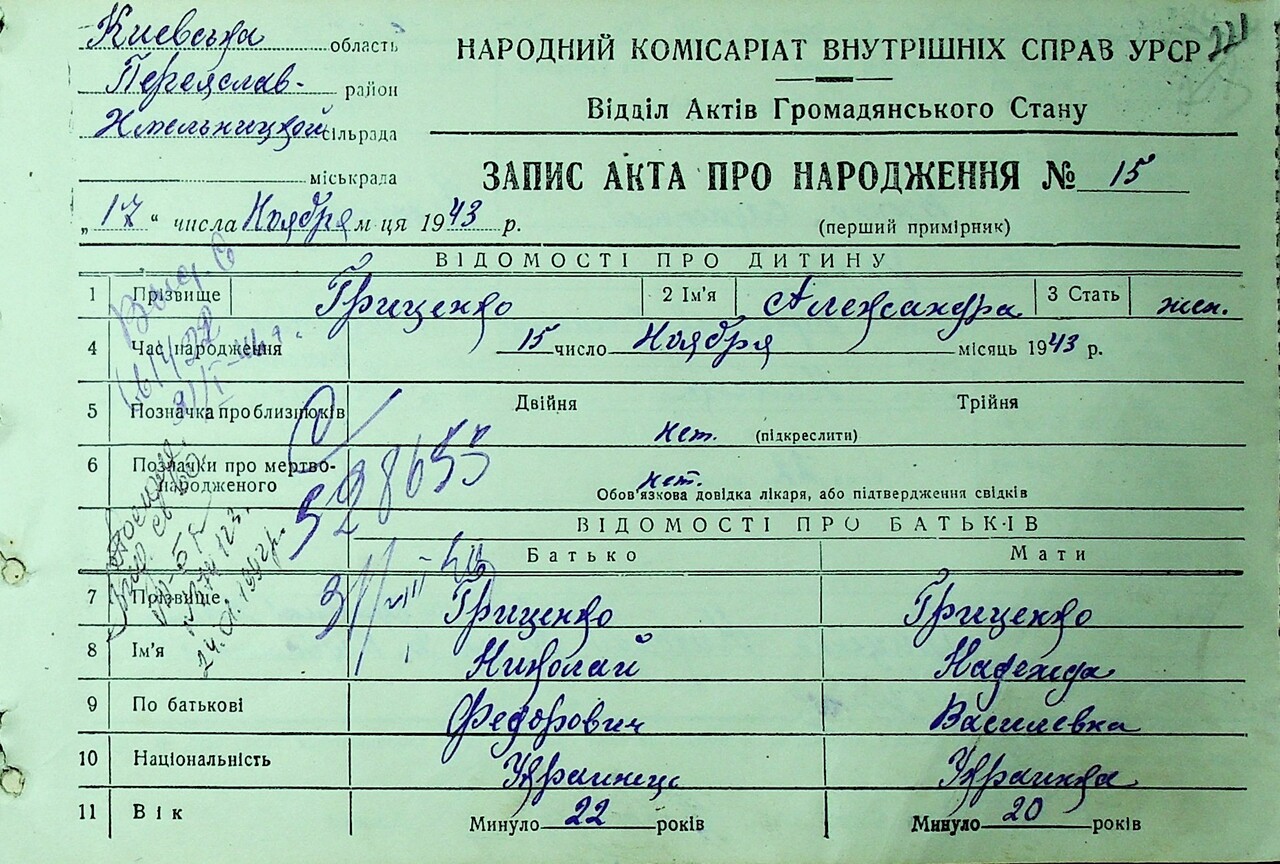 Киевська область
Переяслав- район
Хмельницкой сільрада
міськрада
„17“ числа Ноября м ця 1943 р.
221
НАРОДНИЙ КОМІСАРІАТ ВНУТРІШНІХ СПРАВ УРСР
Відділ Актів Громадянського Стану
ЗАПИС АКТА ПРО НАРОДЖЕННЯ № 15
(перший примірник)
ВІДОМОСТІ ПРО ДИТИНУ
1 Прізвище Гриценко 2 Ім'я Александра 3 Стать жен.
4 Час народження 15 число Ноября місяць 1943 р.
5 Позначка про близнюків Двійня Трійня
нет. (підкреслити)
6 Позначки про мертво-
народженого нет.
Обов'язкова довідка лікаря, або підтвердження свідків
528655
ВІДОМОСТІ ПРО БАТЬКІВ
Батько Мати
7 Прізвище Гриценко Гриценко
8 Ім'я Николай Надежда
9 По батькові Федорович Василевна
10 Національність Украинец Украинка
11 Вік Минуло 22 років Минуло 20 років